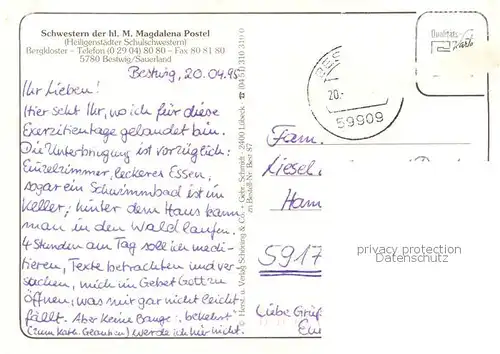 Schwestern der hl. M. Magdalena Postel
(Heiligenstädter Schulschwestern)
Bergkloster – Telefon (0 29 04) 80 80 – Fax 80 81 80
5780 Bestwig/Sauerland
Bestwig, 20.04.95
Ihr Lieben!
Hier seht Ihr, wo ich für diese
Exerzitientage gelandet bin.
Die Unterbringung ist vorzüglich:
Einzelzimmer, leckeres Essen,
sogar ein Schwimmbad ist im
Keller; hinter dem Haus kann
man in den Wald laufen.
4 Stunden am Tag soll ich medi-
tieren, Texte betrachten und ver-
suchen, mich im Gebet Gott zu
öffnen, was mir gar nicht leicht
fällt. Aber keine Bange: „bekehrt"
(zum kath. Glauben) werde ich mir nicht.
© Herst. u. Verlag Schöning & Co. · Gebr. Schmidt · 2400 Lübeck · ☎ (04 51) 310 33 0
Best.-Nr. Best 87
Qualitäts-
Karte
20.
59909
Fam.
Liesel
Ham
5917
privacy protection
Datenschutz
Liebe Grüß